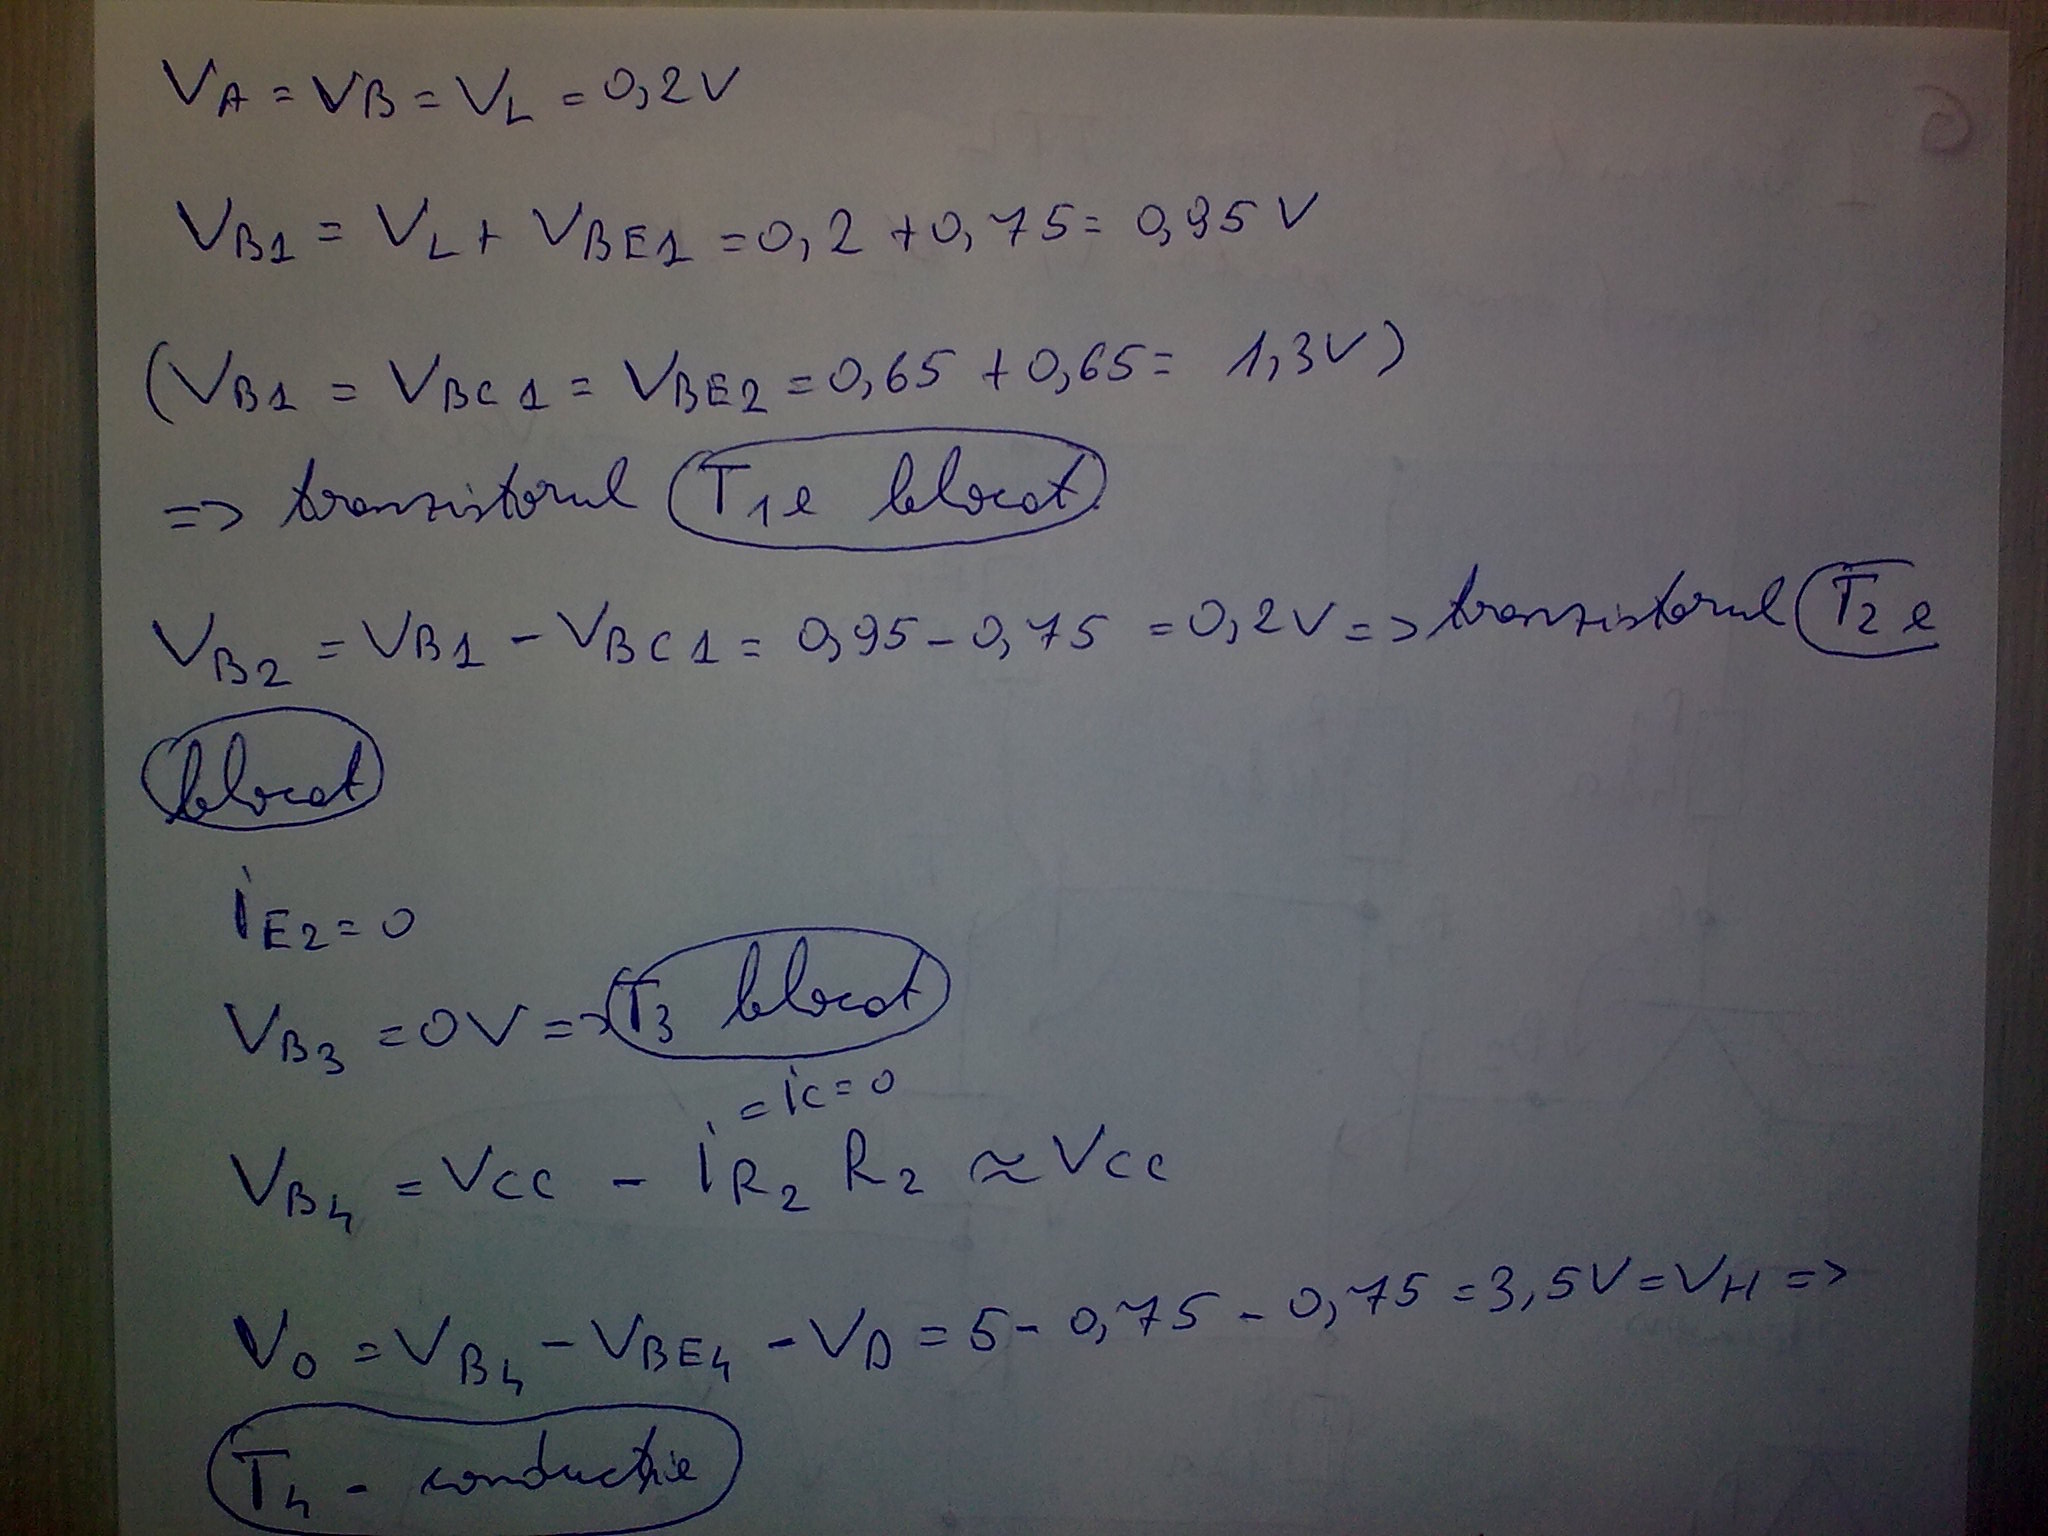 VA = VB = VL = 0,2V
VB1 = VL + VBE1 = 0,2 + 0,75 = 0,95 V
(VB1 = VBC1 = VBE2 = 0,65 + 0,65 = 1,3V)
=> tranzistorul T1 e blocat
VB2 = VB1 - VBC1 = 0,95 - 0,75 = 0,2V => tranzistorul T2 e
blocat
iE2 = 0
VB3 = 0V => T3 blocat
= ic = 0
VB4 = VCC - iR2 R2 ≈ VCC
VO = VB4 - VBE4 - VD = 5 - 0,75 - 0,75 = 3,5V = VH =>
T4 - conducție